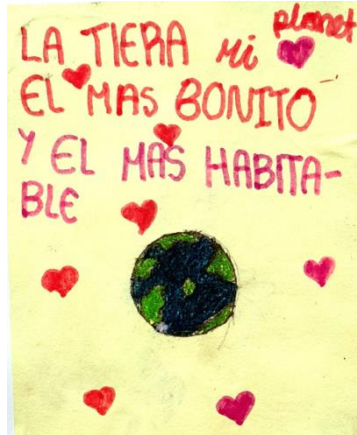 LA TIERA mi planet
EL MAS BONITO
Y EL MAS HABITA-
BLE